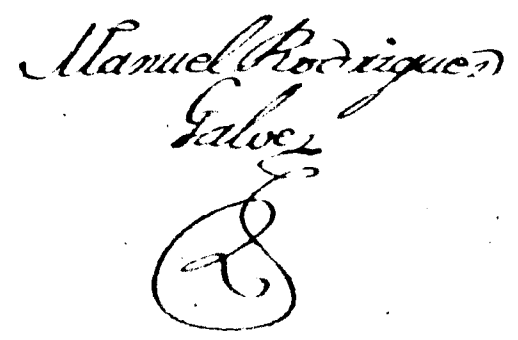 Manuel Rodriguez
Galvez